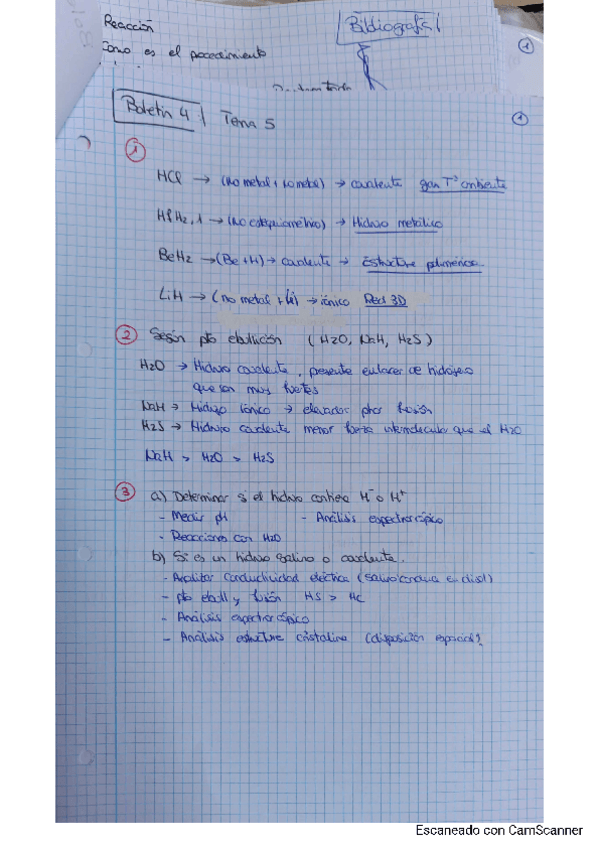 Reacción
Como es el procedimiento
Bibliografía
1
Boletín 4 | Tema 5
1
1
HCl → (no metal + no metal) → covalente gas Tª ambiente
HfH2,1 → (No estequiométrico) → Hidruro metálico
BeH2 → (Be + H) → covalente → Estructura polimérica
LiH → (no metal + Li) → iónico Red 3D
2 Según pto ebullición (H2O, NaH, H2S)
H2O → Hidruro covalente, presenta enlaces de hidrógeno
que son muy fuertes
NaH → Hidruro Iónico → elevados ptos fusión
H2S → Hidruro covalente menor fuerza intermolecular que el H2O
NaH > H2O > H2S
3 a) Determinar si el hidruro contiene H⁻ o H⁺
- Medir pH - Análisis espectroscópico
- Reacciones con H2O
b) Si es un hidruro salino o covalente.
- Analizar conductividad eléctrica (salino conduce en disol)
- pto ebull y fusión HS > HC
- Análisis espectroscópico
- Análisis estructura cristalina (disposición espacial?
Escaneado con CamScanner